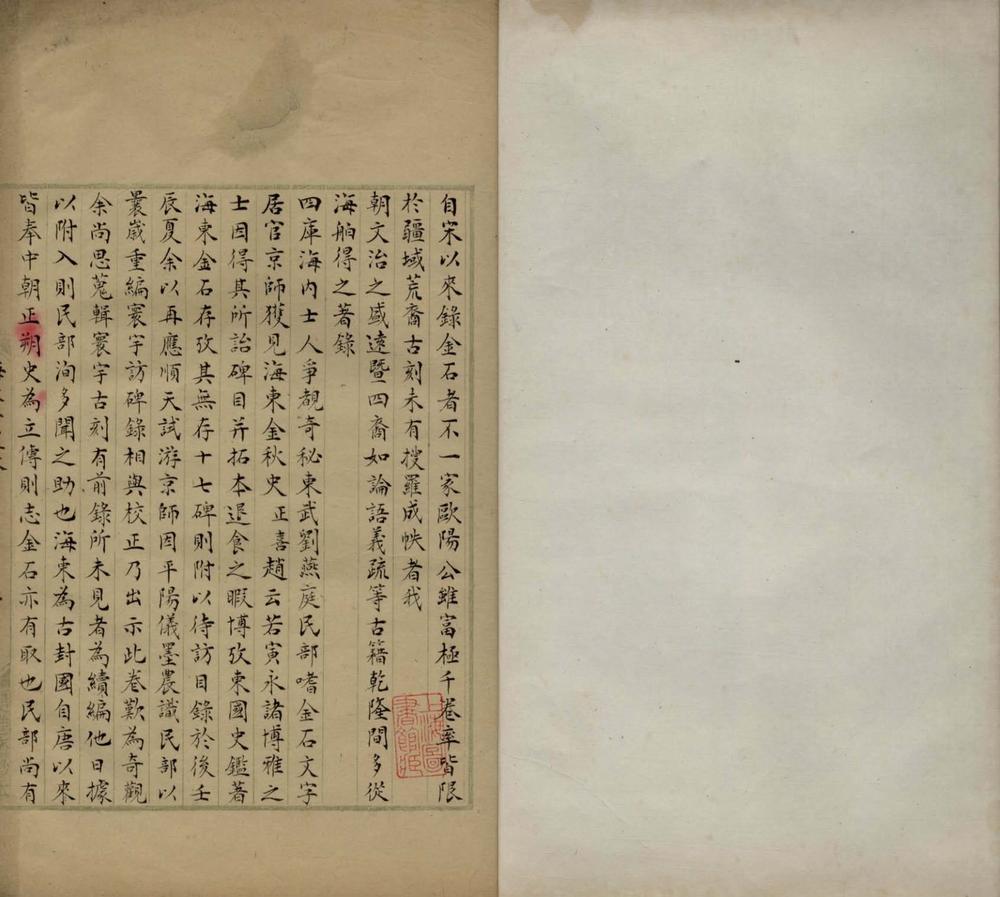 自宋以來錄金石者不一家歐陽公雖富極千卷率皆限
於疆域荒裔古刻未有搜羅成帙者我
朝文治之盛遠暨四裔如論語義疏等古籍乾隆間多從
海舶得之著錄
四庫海內士人爭覩奇秘東武劉燕庭民部嗜金石文字
居官京師獲見海東金秋史正喜趙云若寅永諸博雅之
士因得其所詒碑目并拓本退食之暇博攷東國史鑑著
海東金石存攷其無存十七碑則附以待訪目錄於後壬
辰夏余以再應順天試游京師因平陽儀墨農識民部以
曩歲重編寰宇訪碑錄相與校正乃出示此卷歎為奇觀
余尚思蒐輯寰宇古刻有前錄所未見者為續編他日據
以附入則民部洵多聞之助也海東為古封國自唐以來
皆奉中朝正朔史為立傳則志金石亦有取也民部尚有
上海圖書館所